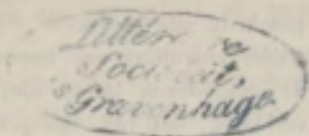 Littéraire
Sociëteit,
's Gravenhage.